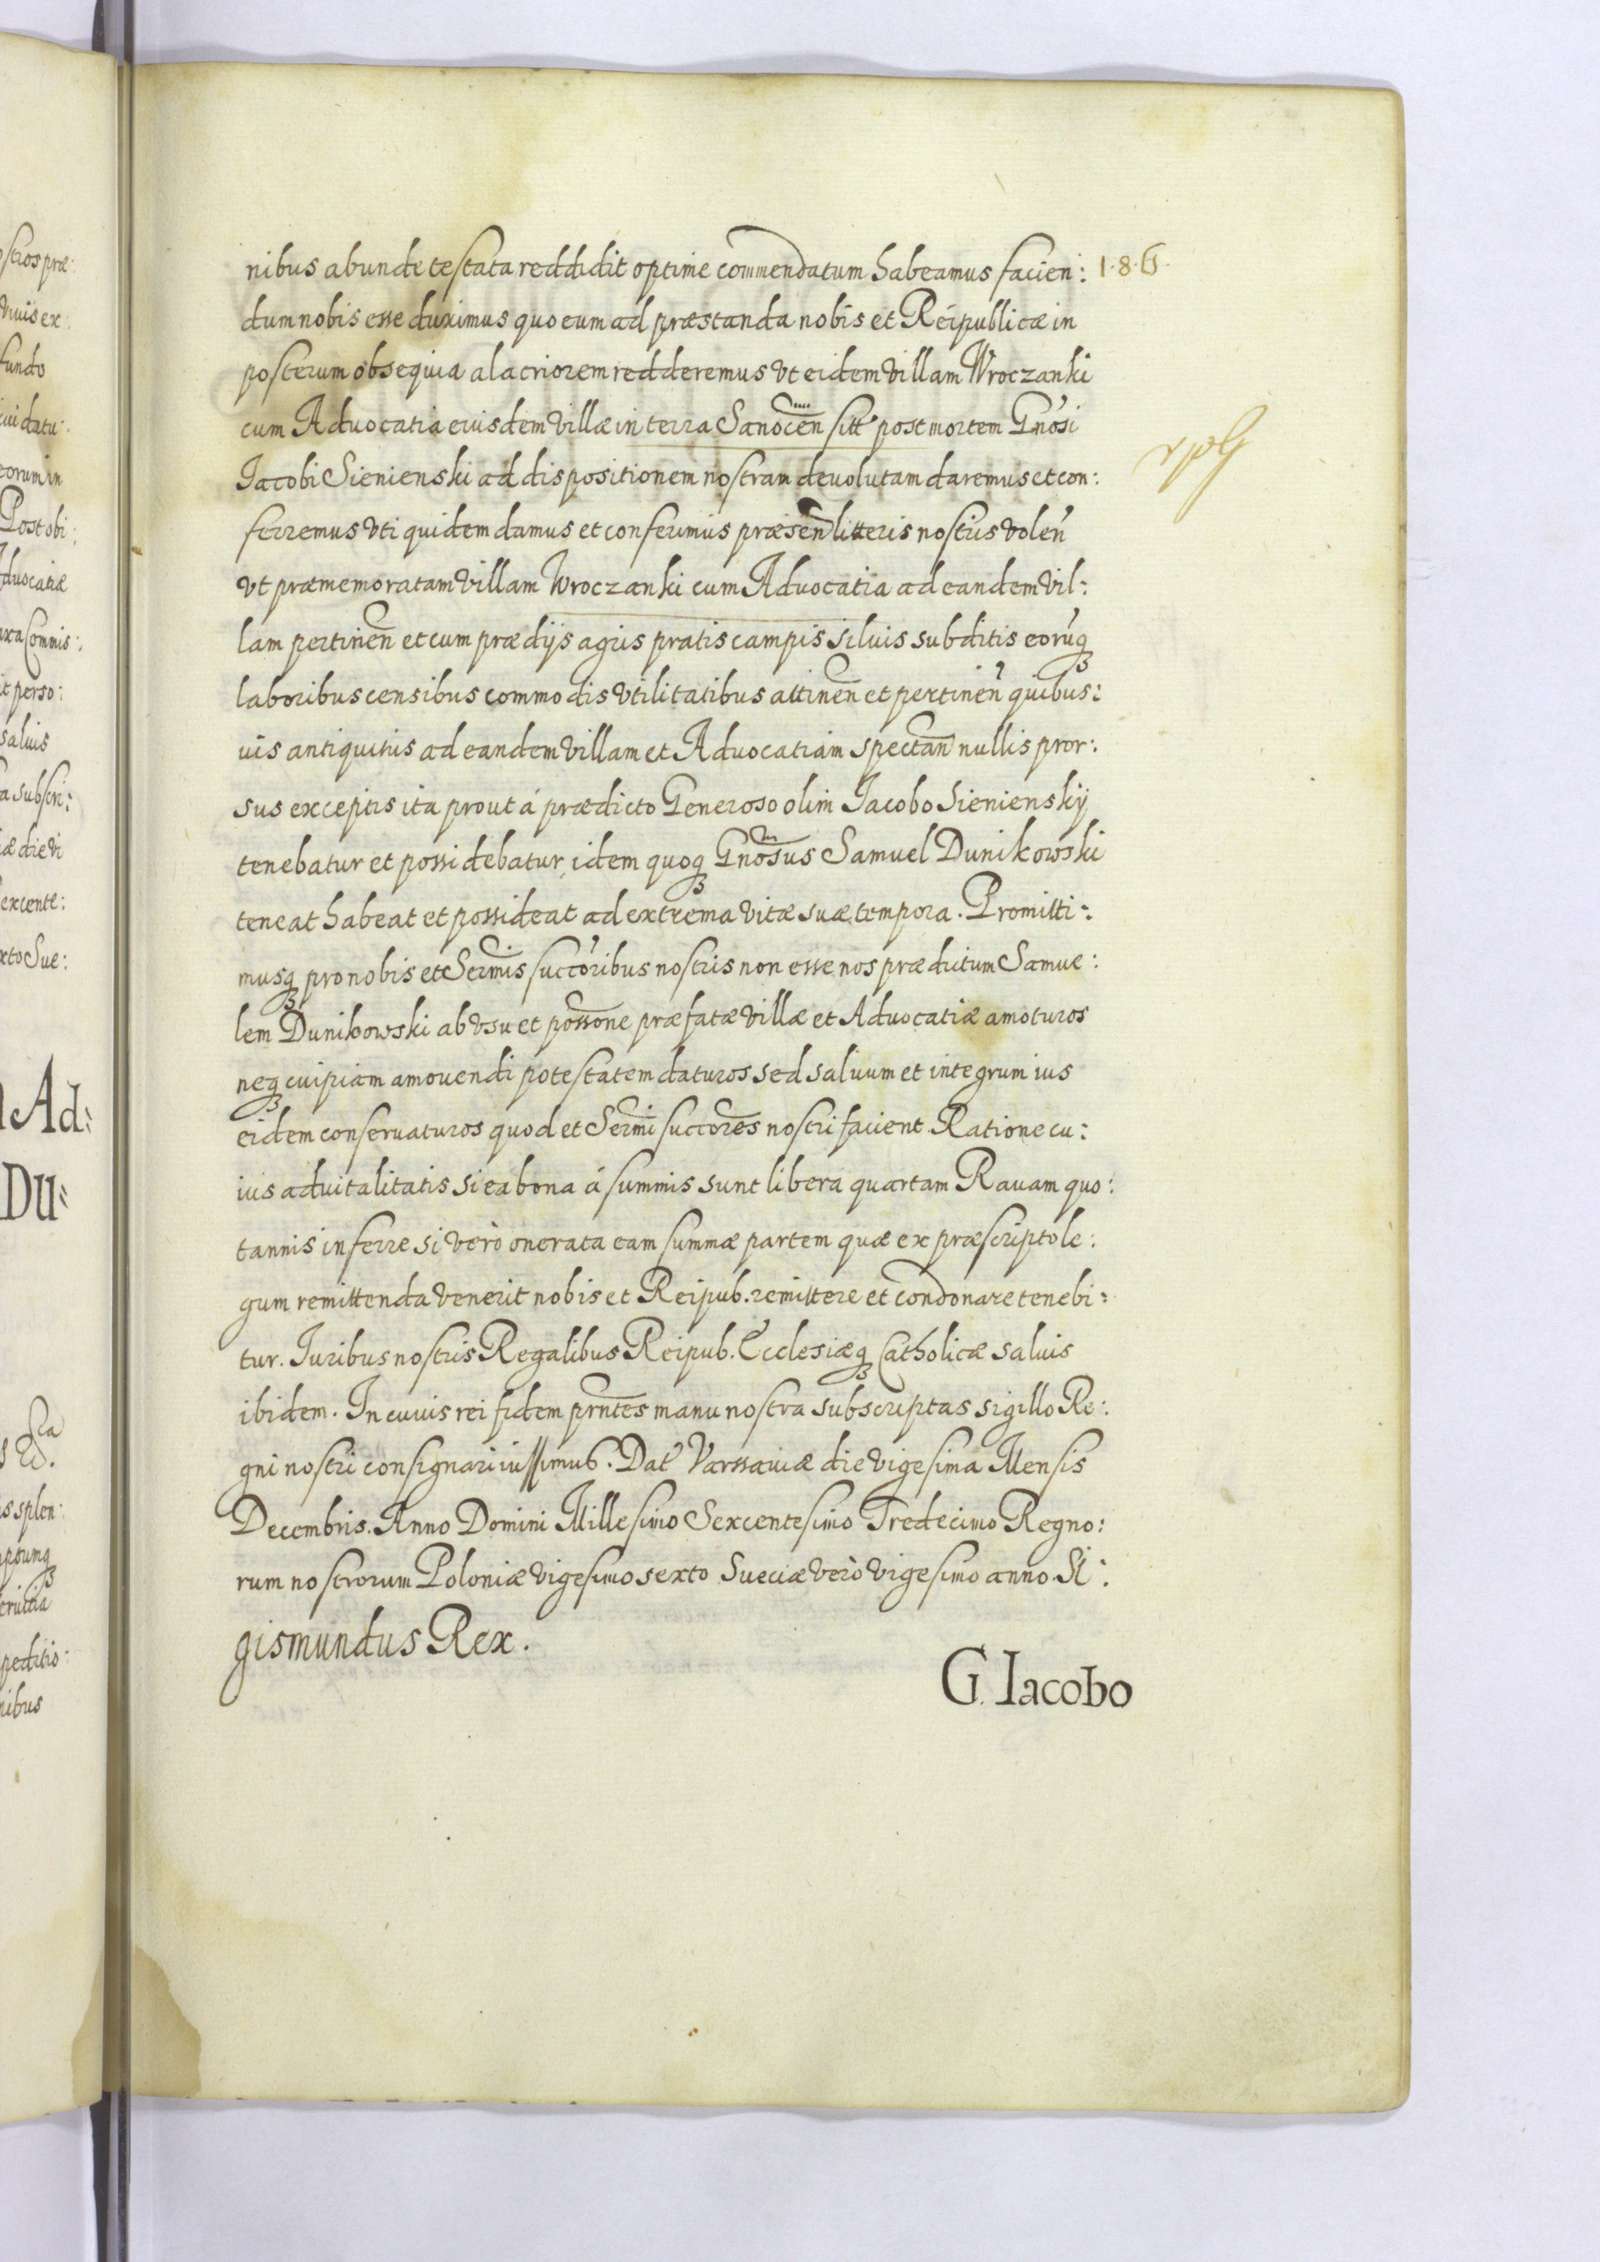 nibus abunde testata reddidit optime commendatum habeamus facien: 1.8.6.
dum nobis esse duximus quo eum ad præstanda nobis et Reipublicæ in
posterum obsequia alacriorem redderemus vt eidem villam Wroczanki
cum Advocatia eiusdem villæ in terra Sanocen sitt post mortem Gnosi
Iacobi Sienienski ad dispositionem nostram deuolutam daremus et con:
ferremus vti quidem damus et conferimus præsen litteris nostris volen
vt præmemoratam villam Wroczanki cum Advocatia ad eandem vil:
lam pertinen et cum prædijs agris pratis campis siluis subditis eorúq
laboribus censibus commodis vtilitatibus attinen et pertinen quibus:
uis antiquitus ad eandem villam et Advocatiam spectan nullis pror:
sus exceptis ita prout á prædicto Generoso olim Iacobo Sienienskÿ
tenebatur et possidebatur, idem quoq Gnosus Samuel Dunikowski
teneat habeat et possideat ad extrema vitæ suæ tempora. Promitti:
musq pro nobis et Sermis succoribus nostris non esse nos prædictum Samue:
lem Dunikowski ab vsu et possone præfatæ villæ et Advocatiæ amoturos
neq cuipiam amouendi potestatem daturos sed saluum et integrum ius
eidem conseruaturos quod et Sermi succores nostri facient. Ratione cu:
ius aduitalitatis si ea bona á summis sunt libera quartam Rauam quo:
tannis inferre si verò onerata eam summæ partem quæ ex præscripto le:
gum remittenda venerit nobis et Reipub. remittere et condonare tenebi:
tur. Iuribus nostris Regalibus Reipub. Ecclesiæq Catholicæ saluis
ibidem. In cuius rei fidem prntes manu nostra subscriptas sigillo Re:
gni nostri consignari iussimus. Dat Varssauiæ die vigesima Mensis
Decembris. Anno Domini Millesimo Sexcentesimo Tredecimo Regno:
rum nostrorum Poloniæ vigesimo sexto Sueciæ verò vigesimo anno. Si:
gismundus Rex.
G. Iacobo